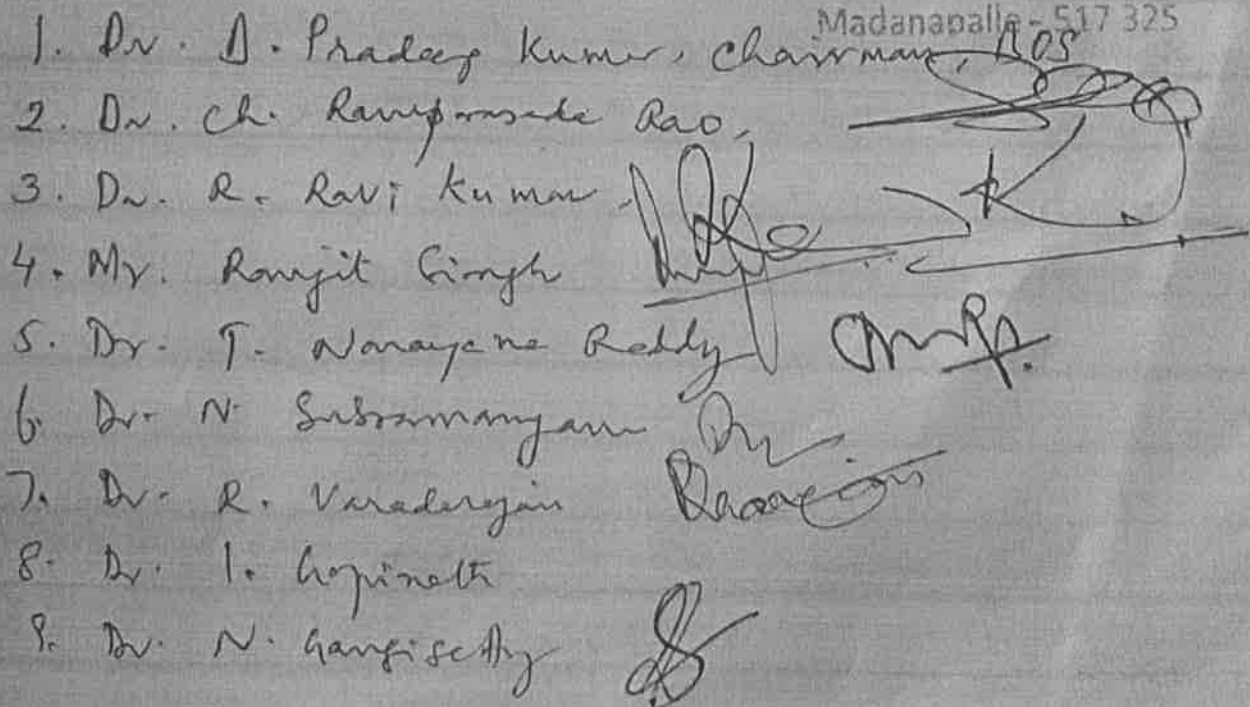 Madanapalle - 517 325
1. Dr. D. Pradeep Kumar, Chairman, BOS
2. Dr. Ch. Ramprasada Rao,
3. Dr. R. Ravi Kumar
4. Mr. Ranjit Singh
5. Dr. T. Narayana Reddy
6. Dr. N. Subramanyam
7. Dr. R. Varadarajan
8. Dr. I. Gopinath
9. Dr. N. Gangisetty